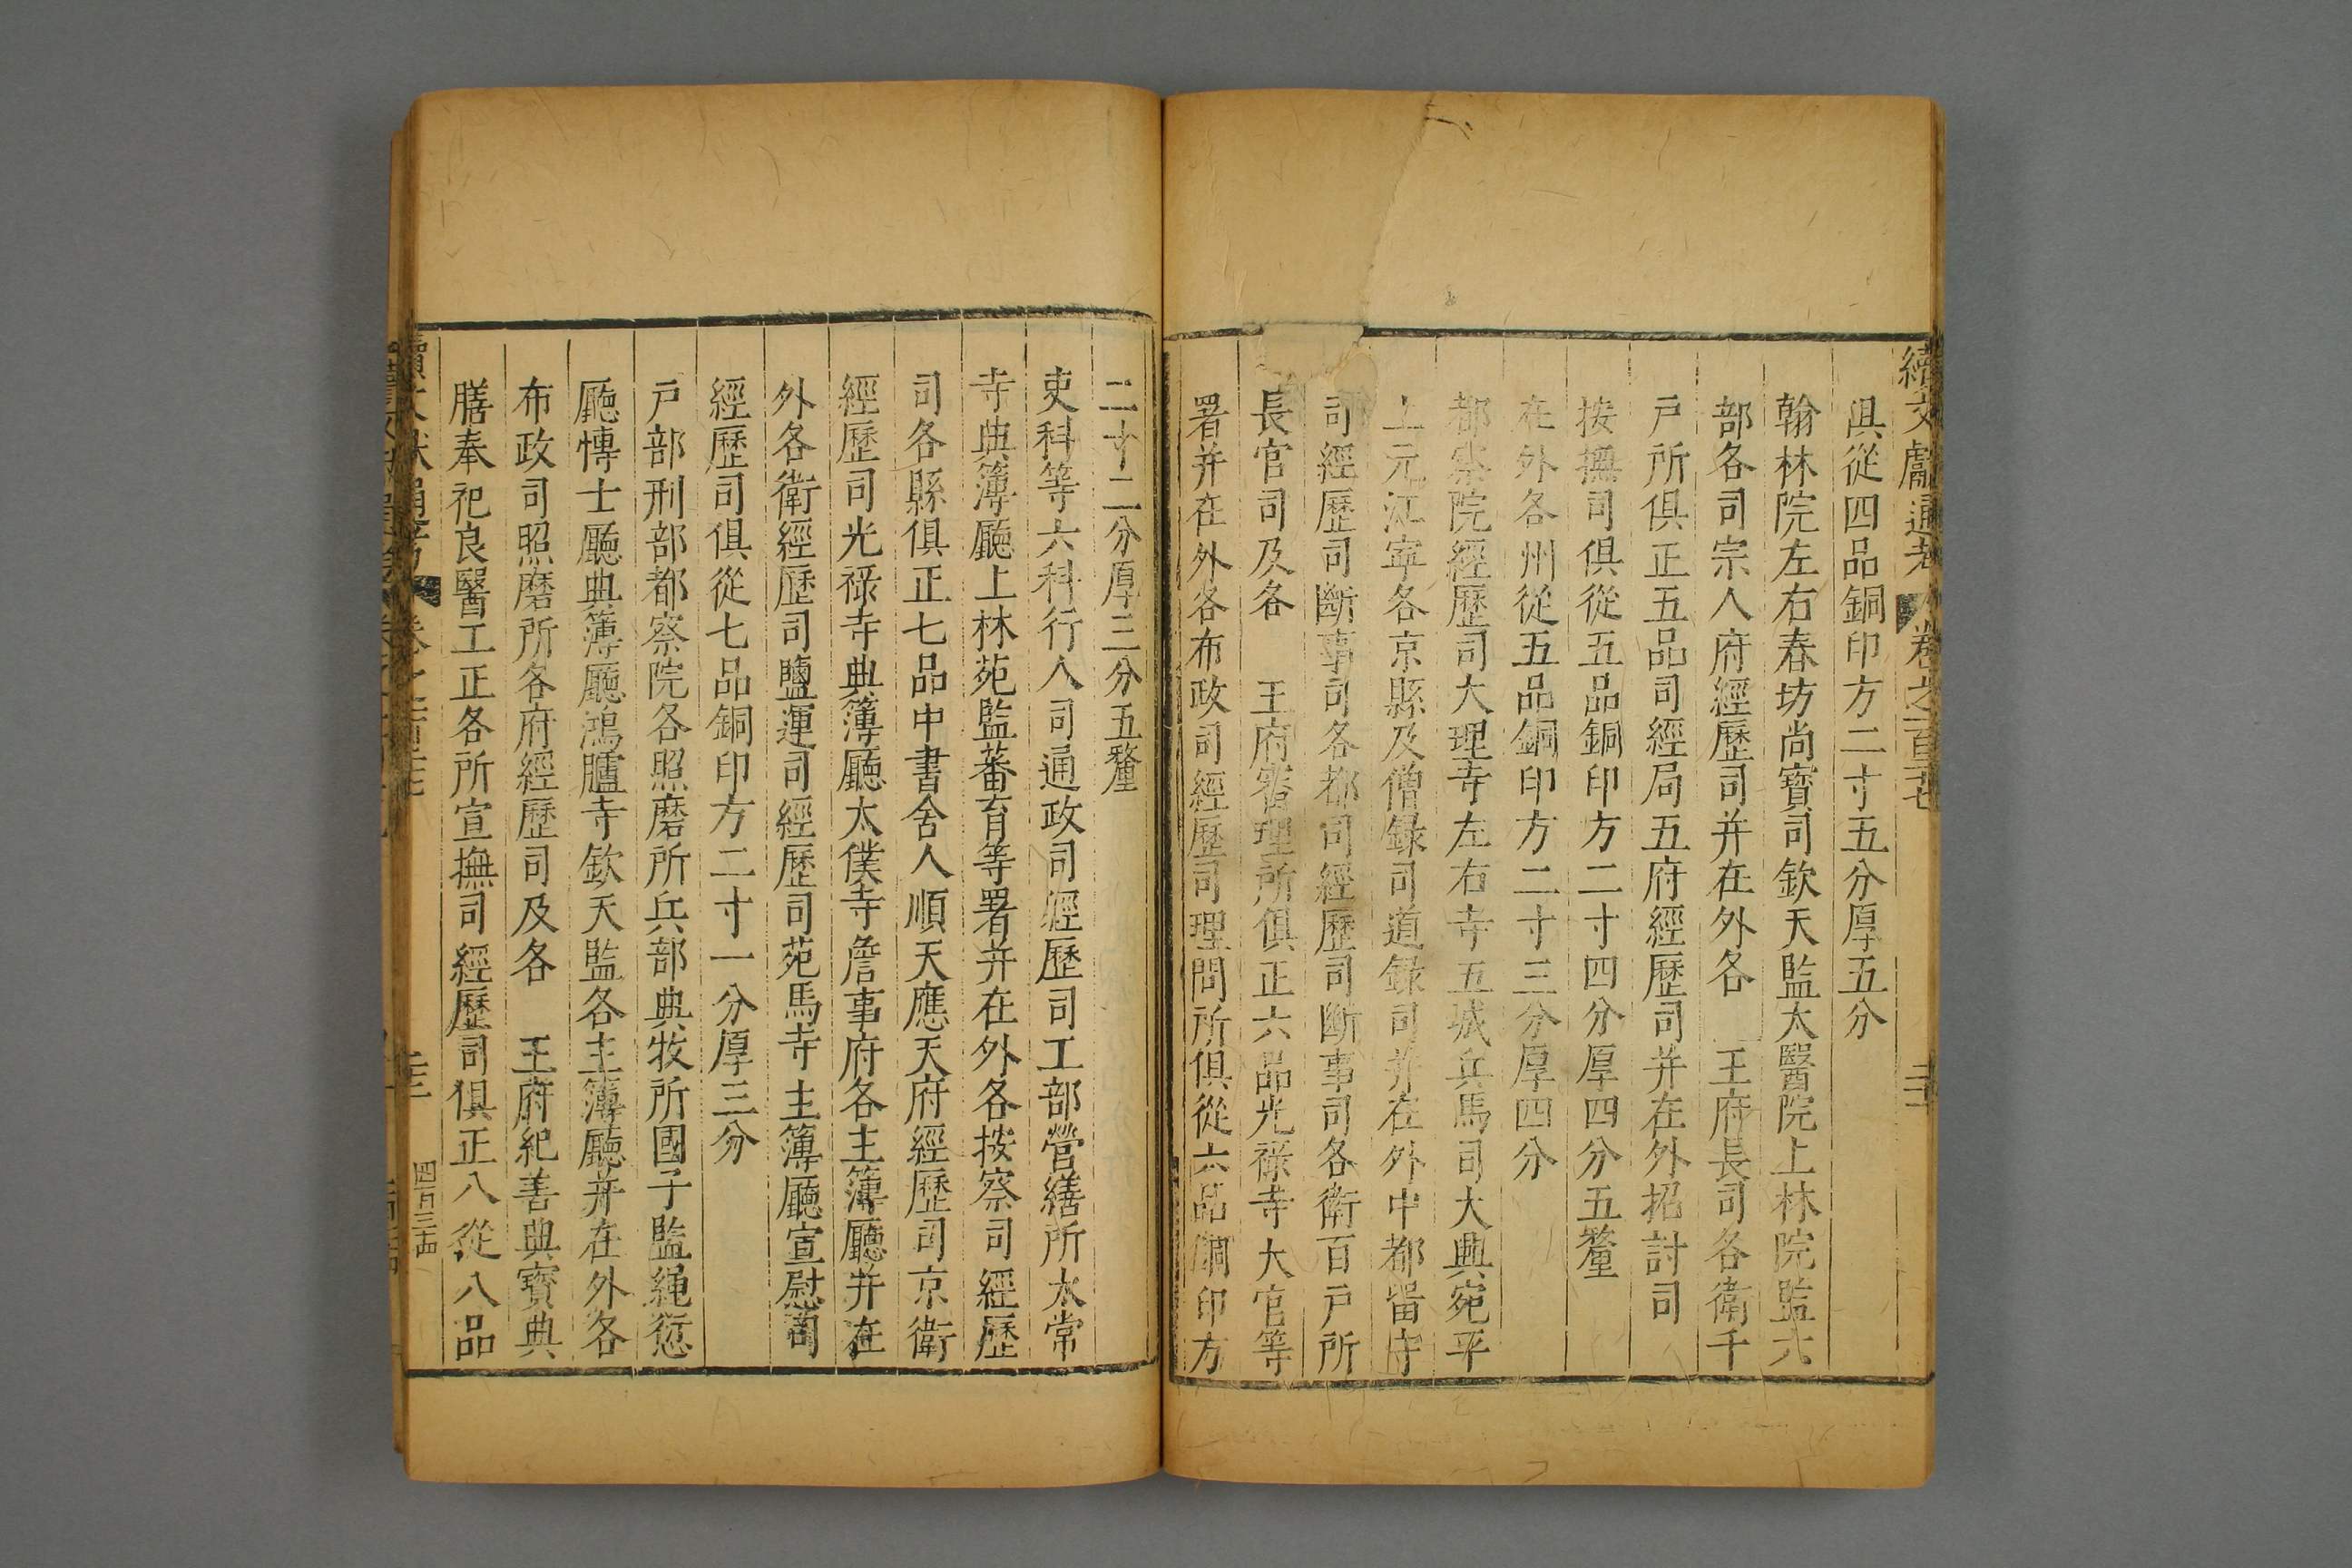 續文獻通考 卷之一百
俱從四品銅印方二寸五分厚五分
翰林院左右春坊尚寶司欽天監太醫院上林院監六
部各司宗人府經歷司并在外各 王府長司各衛千
戶所俱正五品司經局五府經歷司并在外招討司
按撫司俱從五品銅印方二寸四分厚四分五釐
在外各州從五品銅印方二寸三分厚四分
都察院經歷司大理寺左右寺五城兵馬司大興宛平
上元江寧各京縣及僧録司道録司并在外中都留守
司經歷司斷事司各都司經歷司斷事司各衛百戶所
長官司及各 王府審理所俱正六品光祿寺大官等
署并在外各布政司經歷司理問所俱從六品銅印方
二寸二分厚三分五釐
吏科等六科行人司通政司經歷司工部營繕所太常
寺典簿廳上林苑監蕃育等署并在外各按察司經歷
司各縣俱正七品中書舍人順天應天府經歷司京衛
經歷司光祿寺典簿廳太僕寺詹事府各主簿廳并在
外各衛經歷司鹽運司經歷司苑馬寺主簿廳宣慰司
經歷司俱從七品銅印方二寸一分厚三分
戶部刑部都察院各照磨所兵部典牧所國子監繩愆
廳博士廳典簿廳鴻臚寺欽天監各主簿廳并在外各
布政司照磨所各府經歷司及各 王府紀善典寶典
膳奉祀良醫工正各所宣撫司經歷司俱正八從八品
四百三十四